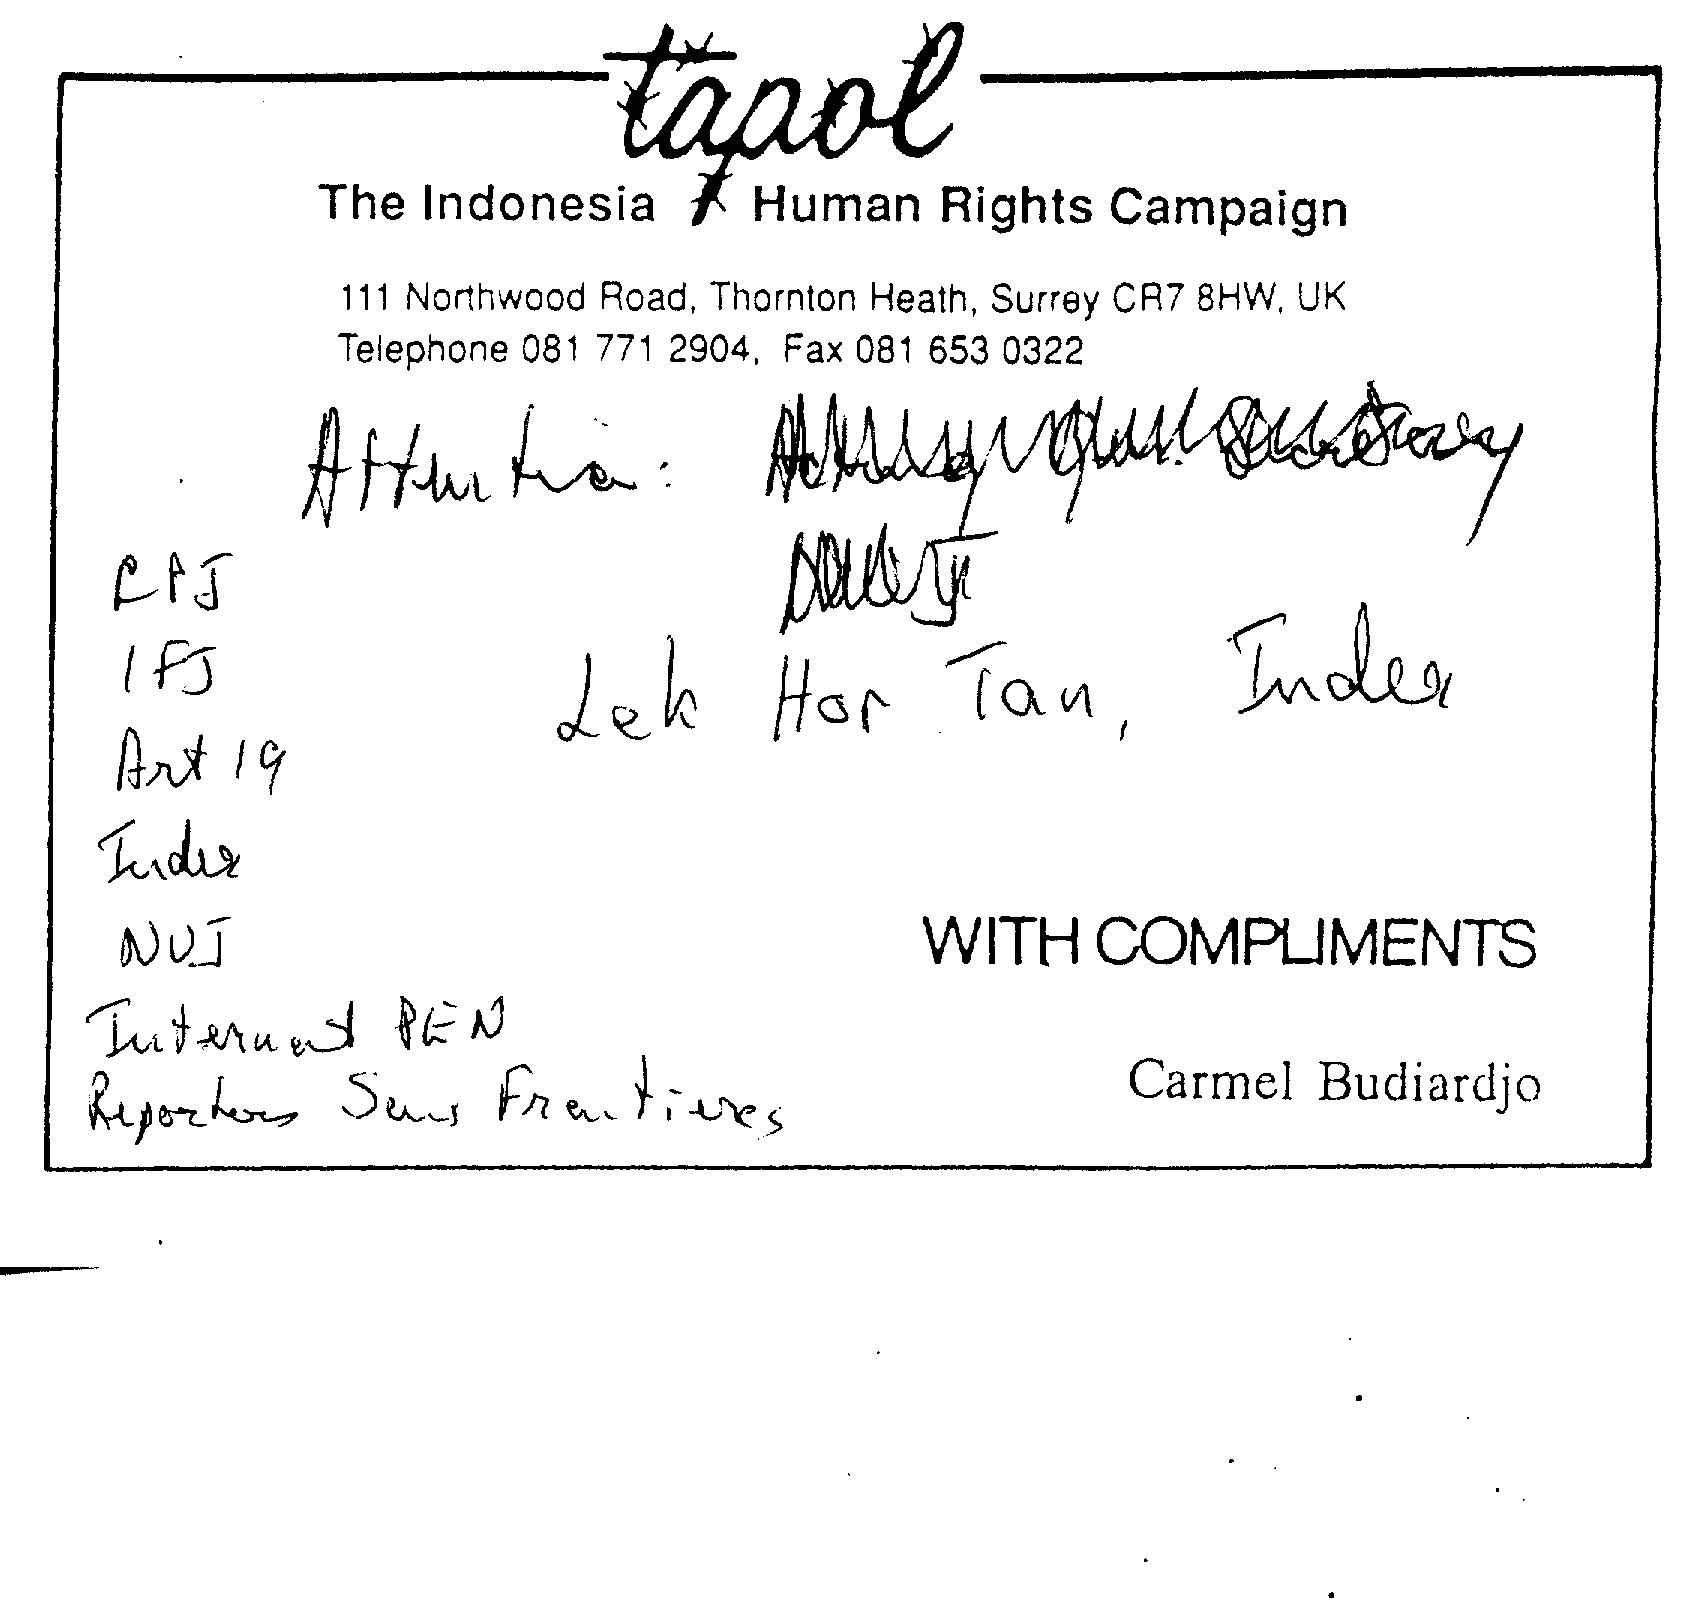 tapol
The Indonesia Human Rights Campaign
111 Northwood Road, Thornton Heath, Surrey CR7 8HW, UK
Telephone 081 771 2904, Fax 081 653 0322
Attention:
CPJ
IFJ
Lek Hor Tan, Index
Art 19
Index
NUJ
WITH COMPLIMENTS
Internat PEN
Carmel Budiardjo
Reporters Sans Frontieres